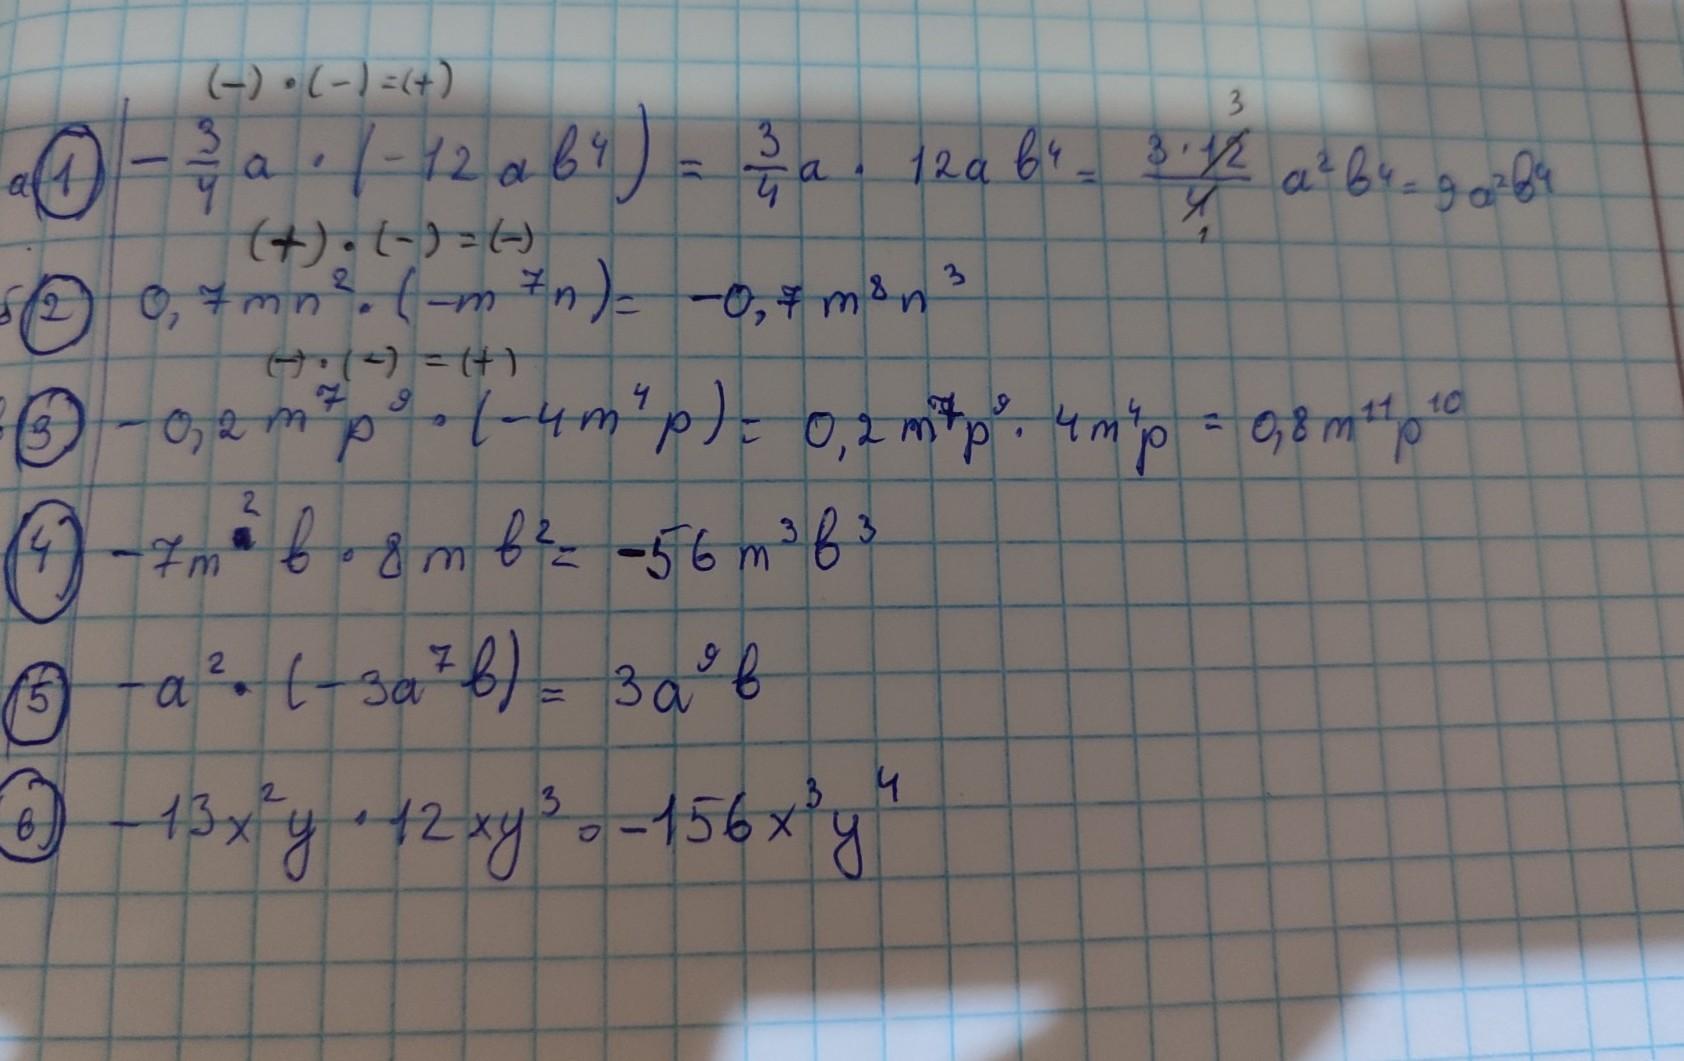 (-) · (-) = (+)
а 1 -3/4 a · (-12 a b⁴) = 3/4 a · 12a b⁴ = 3·12/4 a² b⁴ = 9a²b⁴
3
1
(+) · (-) = (-)
б 2 0,7mn² · (-m⁷n) = -0,7m⁸n³
(-) · (-) = (+)
в 3 -0,2m⁷p⁹ · (-4m⁴p) = 0,2m⁷p⁹ · 4m⁴p = 0,8m¹¹p¹⁰
4 -7m² b · 8m b² = -56m³b³
5 -a² · (-3a⁷b) = 3a⁹b
6 -13x²y · 12xy³ = -156x³y⁴